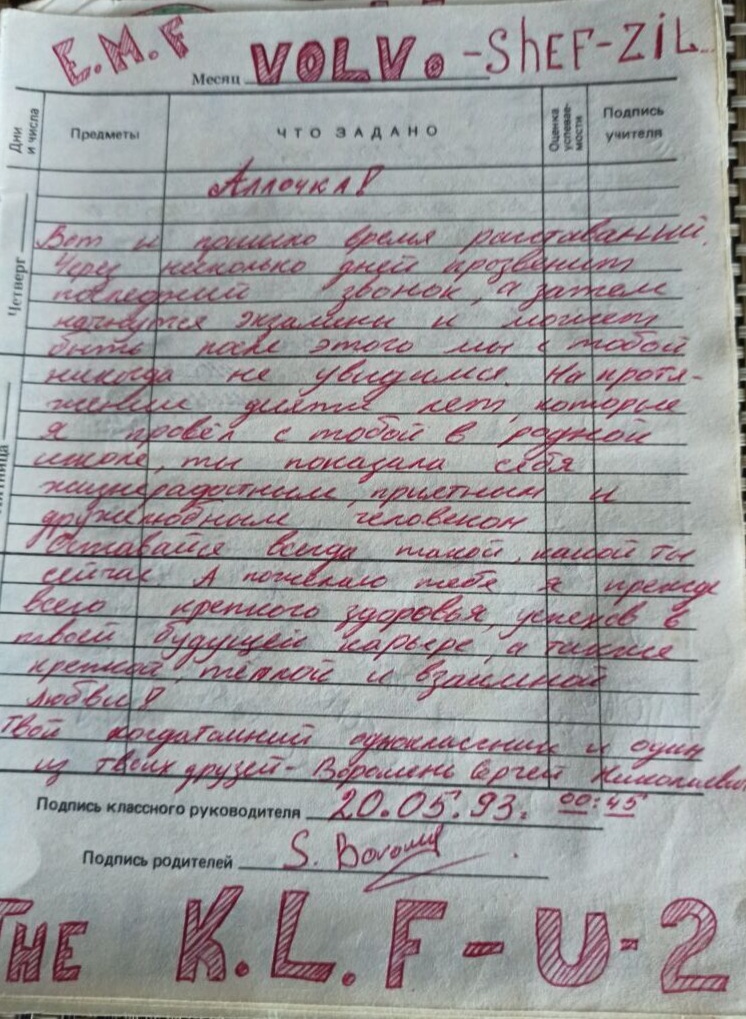 E.M.F VOLVo -ShEF-ZiL
Месяц
Дни и числа Предметы ЧТО ЗАДАНО Оценка успевае-мости Подпись учителя
Аллочка!
Четверг
Вот и пришло время расставаний.
Через несколько дней прозвенит
последний звонок, а затем
начнутся экзамены и может
быть после этого мы с тобой
никогда не увидимся. На протя-
жении десяти лет, которые
я провёл с тобой в родной
школе, ты показала себя
жизнерадостным, приятным и
дружелюбным человеком
Оставайся всегда такой, какой ты
сейчас А пожелаю тебе я прежде
всего крепкого здоровья, успехов в
твоей будущей карьере, а также
крепкой, тёплой и взаимной
любви!
Твой когдатошний одноклассник и один
из твоих друзей - Сергей Николаевич
Подпись классного руководителя 20.05.93. 00:45
Подпись родителей S.
THE K.L.F-U-2